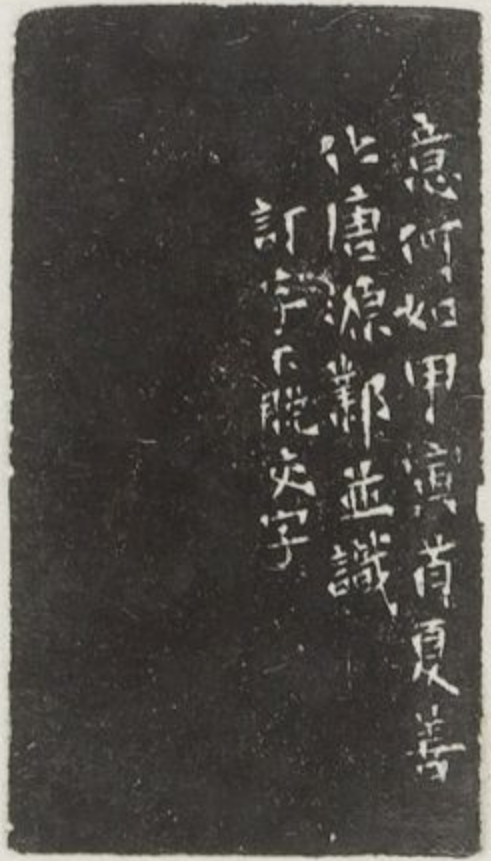 意何如甲寅首夏善
化唐源鄴並識
訂字下脫交字